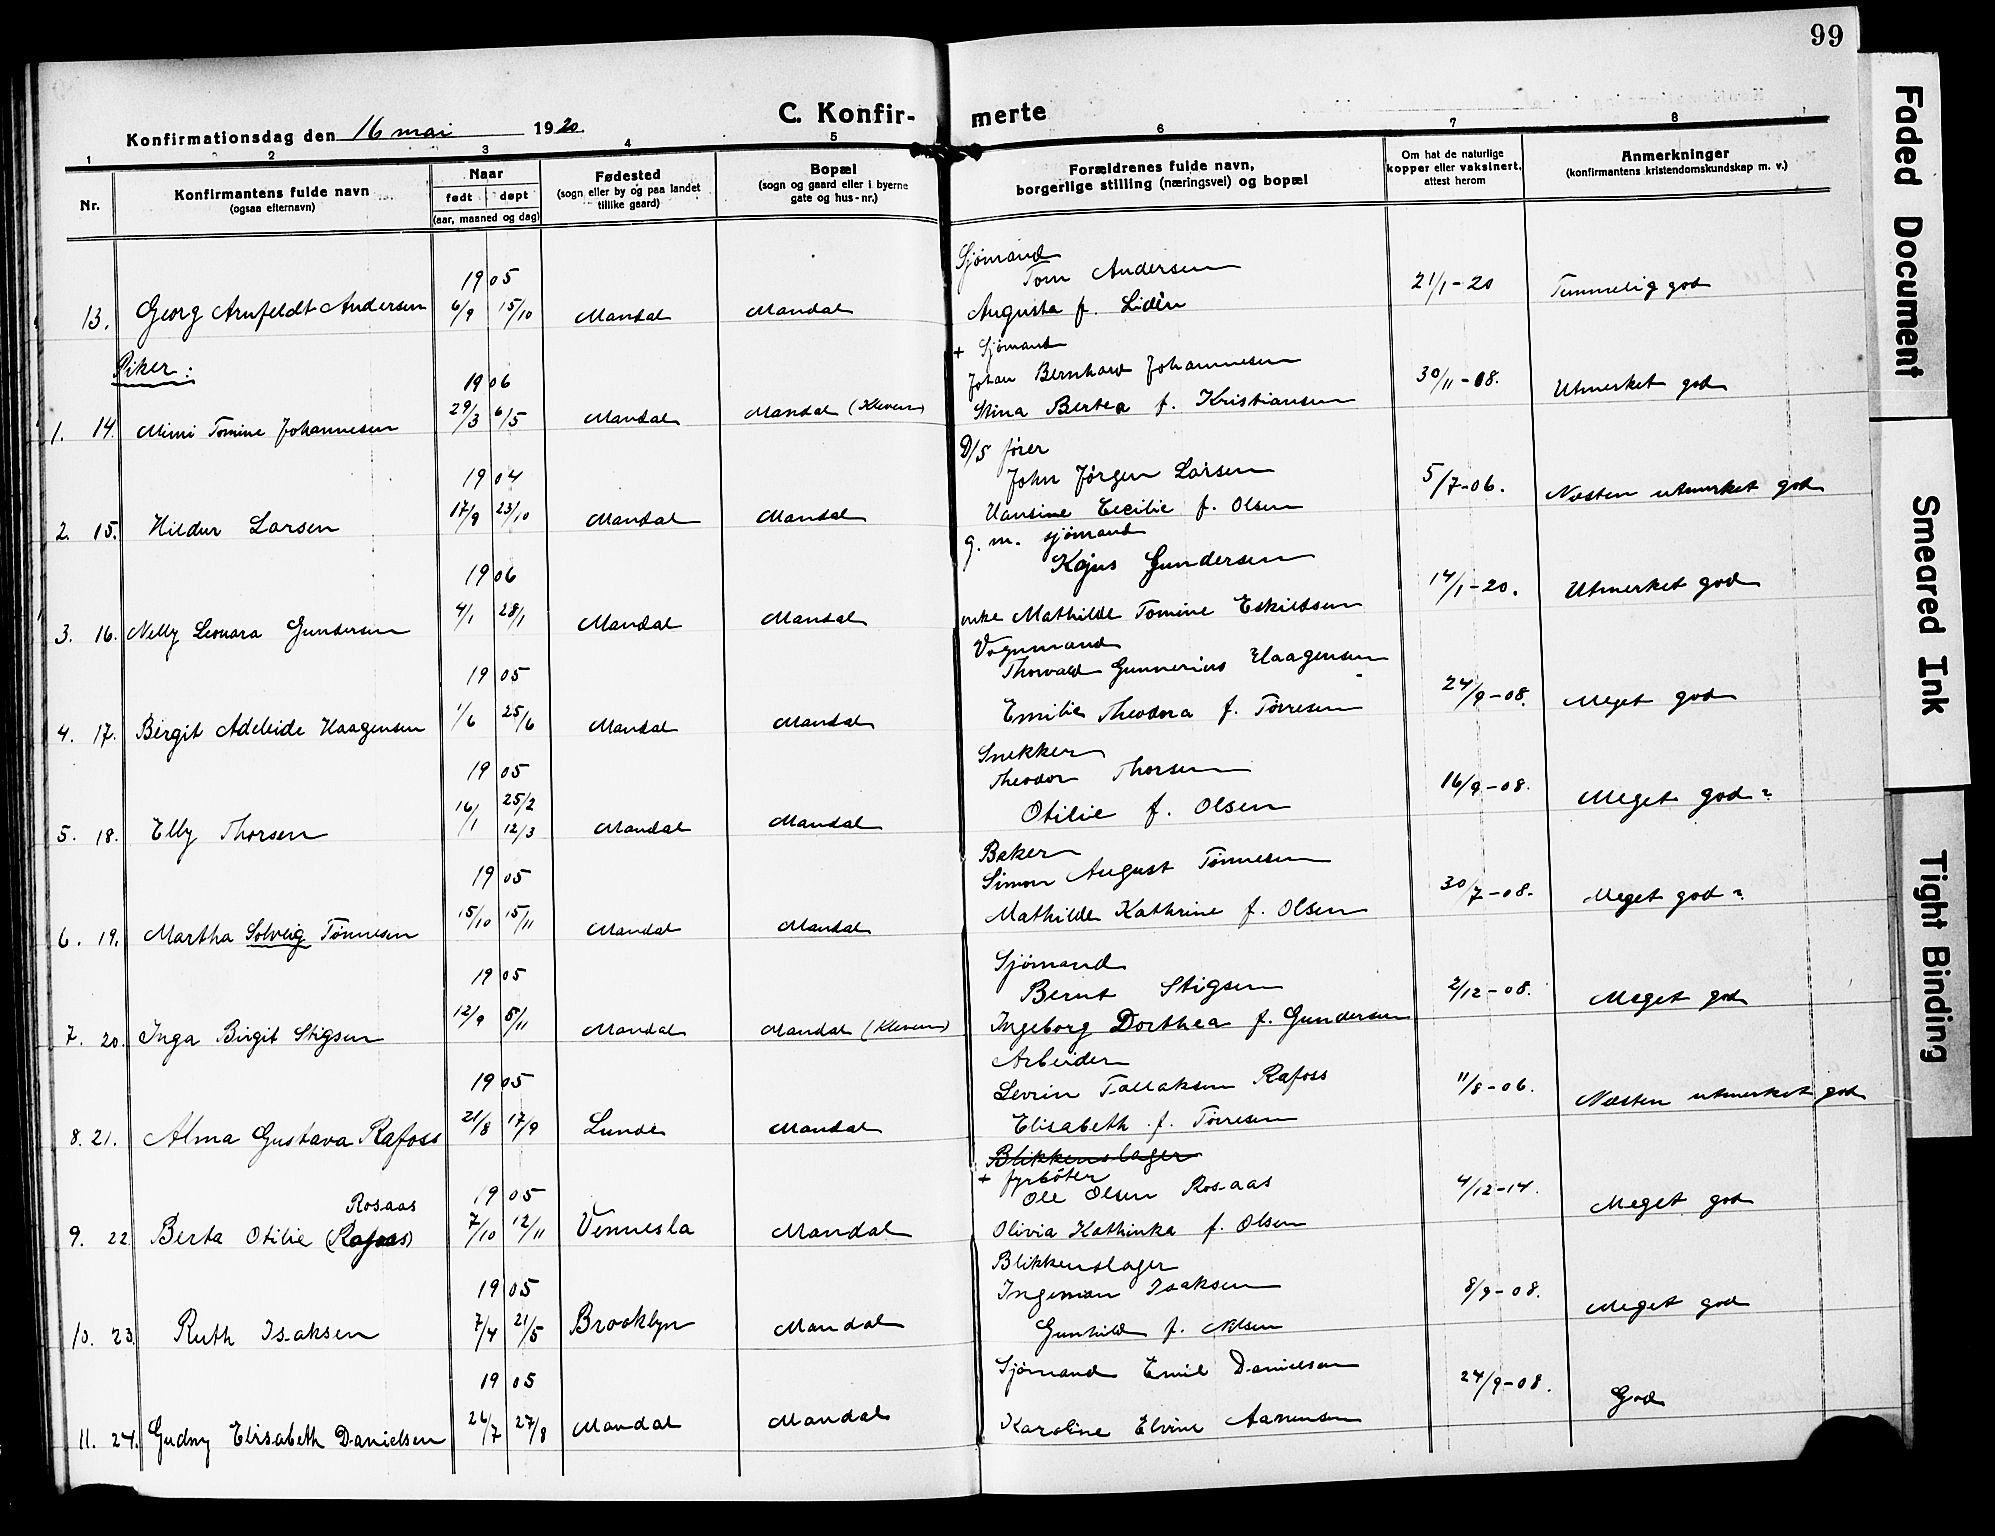 99
Konfirmationsdag den 16 mai 1920.
C. Konfir- merte
1 2 3 4 5 6 7 8
Nr.
Konfirmantens fulde navn
(ogsaa efternavn)
Naar
født døpt
(aar, maaned og dag)
Fødested
(sogn eller by og paa landet
tillike gaard)
Bopæl
(sogn og gaard eller i byerne
gate og hus-nr.)
Forældrenes fulde navn,
borgerlige stilling (næringsvei) og bopæl
Om hat de naturlige
kopper eller vaksinert,
attest herom
Anmerkninger
(konfirmantens kristendomskundskap m. v.)
Sjømand
1905 Tom Andersen
13. Georg Arnfeldt Andersen 6/9 15/10 Mandal Mandal Augusta f. Lidén 21/1-20 Temmelig god
Piker:
+ Sjømand
1906 Johan Bernhard Johannesen
1. 14. Mimi Tomine Johannesen 29/3 6/5 Mandal Mandal (Kleven) Stina Bertea f. Kristiansen 30/11-08. Utmerket god
D/S fører
1904 John Jørgen Larsen
2. 15. Hildur Larsen 17/9 23/10 Mandal Mandal Hansine Cecilie f. Olsen 5/7-06. Næsten utmerket god
g. m. sjømand
1906 Kajus Gundersen
3. 16. Nelly Leonara Gundersen 4/1 28/1 Mandal Mandal enke Mathilde Tomine Eskildsen 14/1-20. Utmerket god
Vognmand
1905 Thorvald Gunnerius Haagensen
4. 17. Birgit Adeleide Haagensen 1/6 25/6 Mandal Mandal Emilie Theodora f. Tørresen 24/9-08. Meget god
Snekker
1905 Theodor Thorsen
5. 18. Elly Thorsen 16/1 25/2 12/3 Mandal Mandal Otilie f. Olsen 16/9-08. Meget god?
Baker
1905 Simon August Tønnesen
6. 19. Martha Solveig Tønnesen 15/10 15/11 Mandal Mandal Mathilde Kathrine f. Olsen 30/7-08. Meget god?
Sjømand
1905 Bernt Stigsen
7. 20. Inga Birgit Stigsen 12/9 5/11 Mandal Mandal (Kleven) Ingeborg Dorthea f. Gundersen 2/12-08. Meget god
Arbeider
1905 Severin Tallaksen Rafoss
8. 21. Alma Gustava Rafoss 21/8 17/9 Lunde Mandal Elisabeth f. Tørresen 11/8-06. Næsten utmerket god
Blikkenslager
+ fyrbøter
Rosaas 1905 Ole Olsen Rosaas
9. 22. Berta Otilie (Rafoss) 7/10 12/11 Vennesla Mandal Olivia Kathinka f. Olsen 4/12-14. Meget god
Blikkenslager
1905 Ingeman Isaksen
10. 23. Ruth Isaksen 7/4 21/5 Brooklyn Mandal Gunhild f. Nilsen 8/9-08. Meget god
1905 Sjømand Emil Danielsen
11. 24. Gudny Elisabeth Danielsen 26/7 27/8 Mandal Mandal Karoline Elvine Aanensen 24/9-08. God
Faded Document
Smeared Ink
Tight Binding